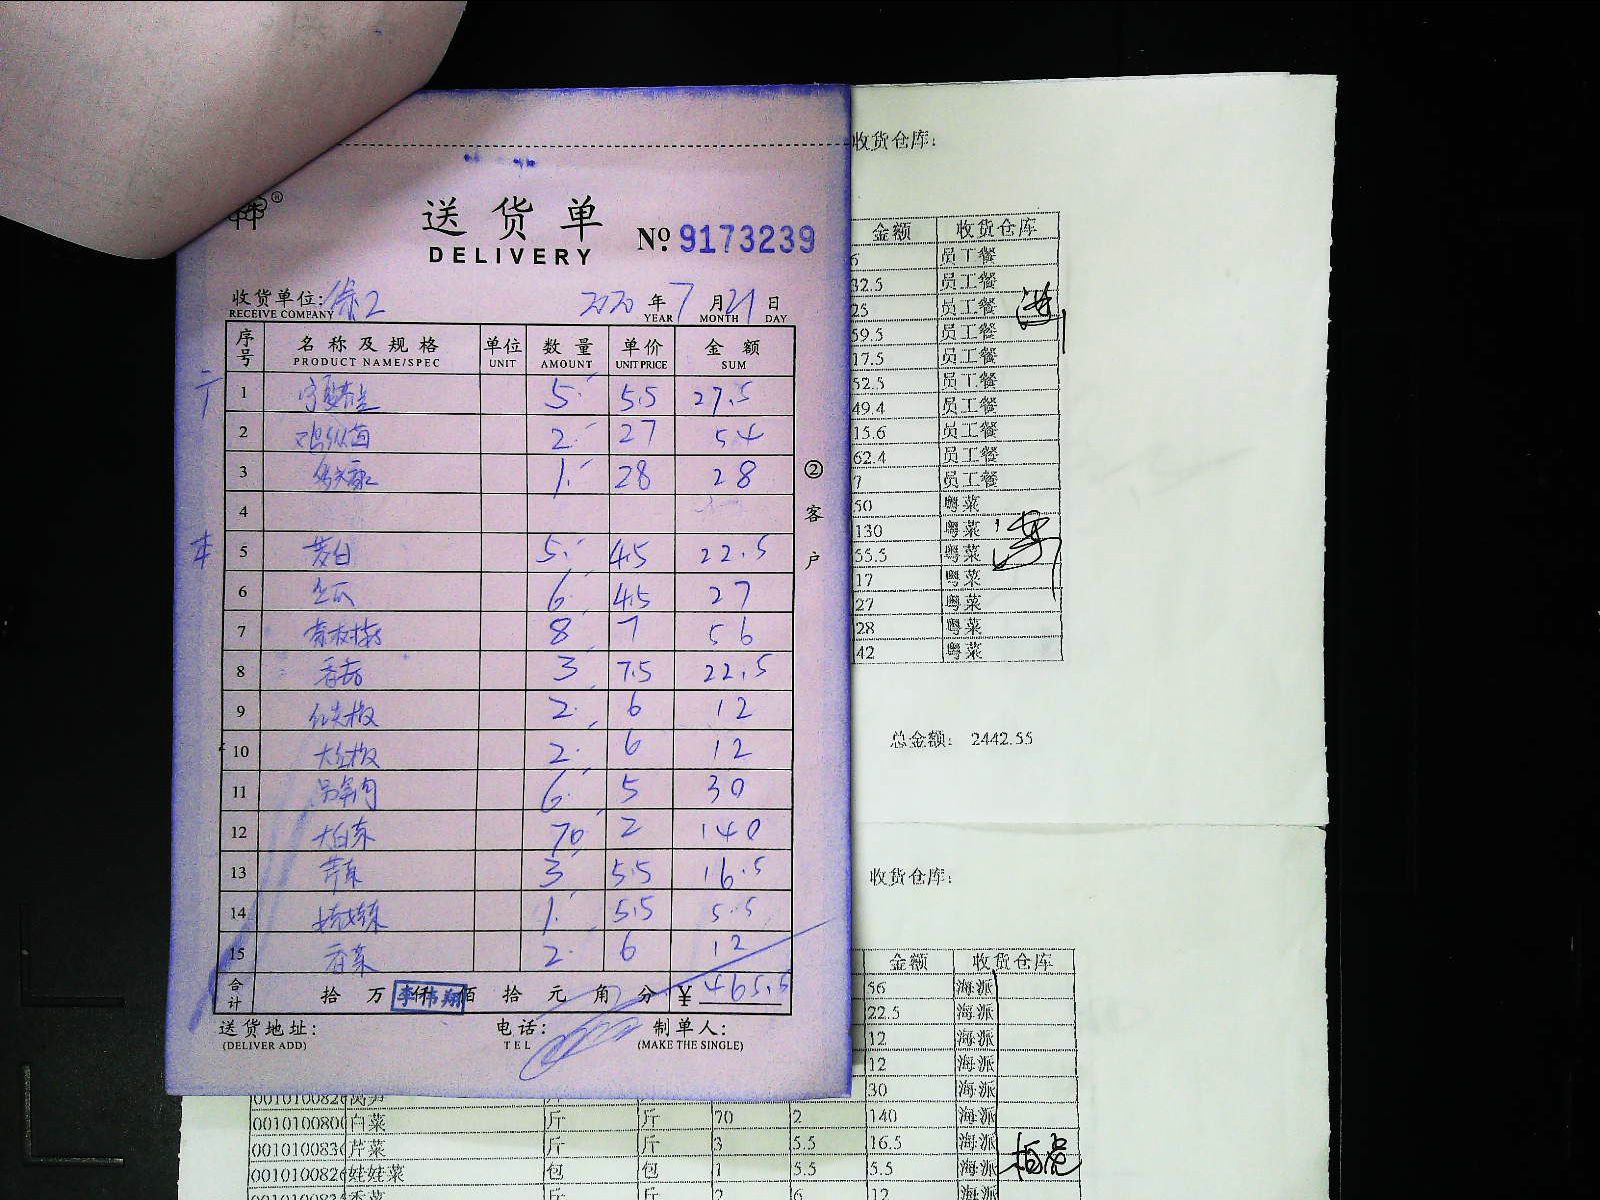 送货单
DELIVERY
№ 9173239
收货单位:
RECEIVE COMPANY
2020 年 7 月 21 日
YEAR MONTH DAY
序号 名称及规格 单位 数量 单价 金额
PRODUCT NAME/SPEC UNIT AMOUNT UNIT PRICE SUM
1 5 5.5 27.5
2 鸡纵菌 2 27 54
3 1 28 28
4
5 茭白 5 4.5 22.5
6 4.5 27
7 8 7 56
8 香菇 3 7.5 22.5
9 红尖椒 2 6 12
10 大红椒 2 6 12
11 6 5 30
12 大白菜 70 2 140
13 芹菜 3 5.5 16.5
14 1 5.5 5.5
15 香菜 2 6 12
合计 拾 万 仟 佰 拾 元 角 分 ¥ 465.5
李伟翔
送货地址: 电话: 制单人:
(DELIVER ADD) TEL (MAKE THE SINGLE)
②客户
收货仓库:
金额 收货仓库
员工餐
32.5 员工餐
25 员工餐
59.5 员工餐
17.5 员工餐
52.5 员工餐
49.4 员工餐
15.6 员工餐
62.4 员工餐
7 员工餐
50 粤菜
130 粤菜
55.5 粤菜
17 粤菜
27 粤菜
28 粤菜
42 粤菜
总金额: 2442.55
收货仓库:
金额 收货仓库
56 海派
22.5 海派
12 海派
12 海派
30 海派
白菜 斤 斤 70 2 140 海派
芹菜 斤 斤 3 5.5 16.5 海派
娃娃菜 包 包 1 5.5 5.5 海派
香菜 斤 斤 2 6 12 海派